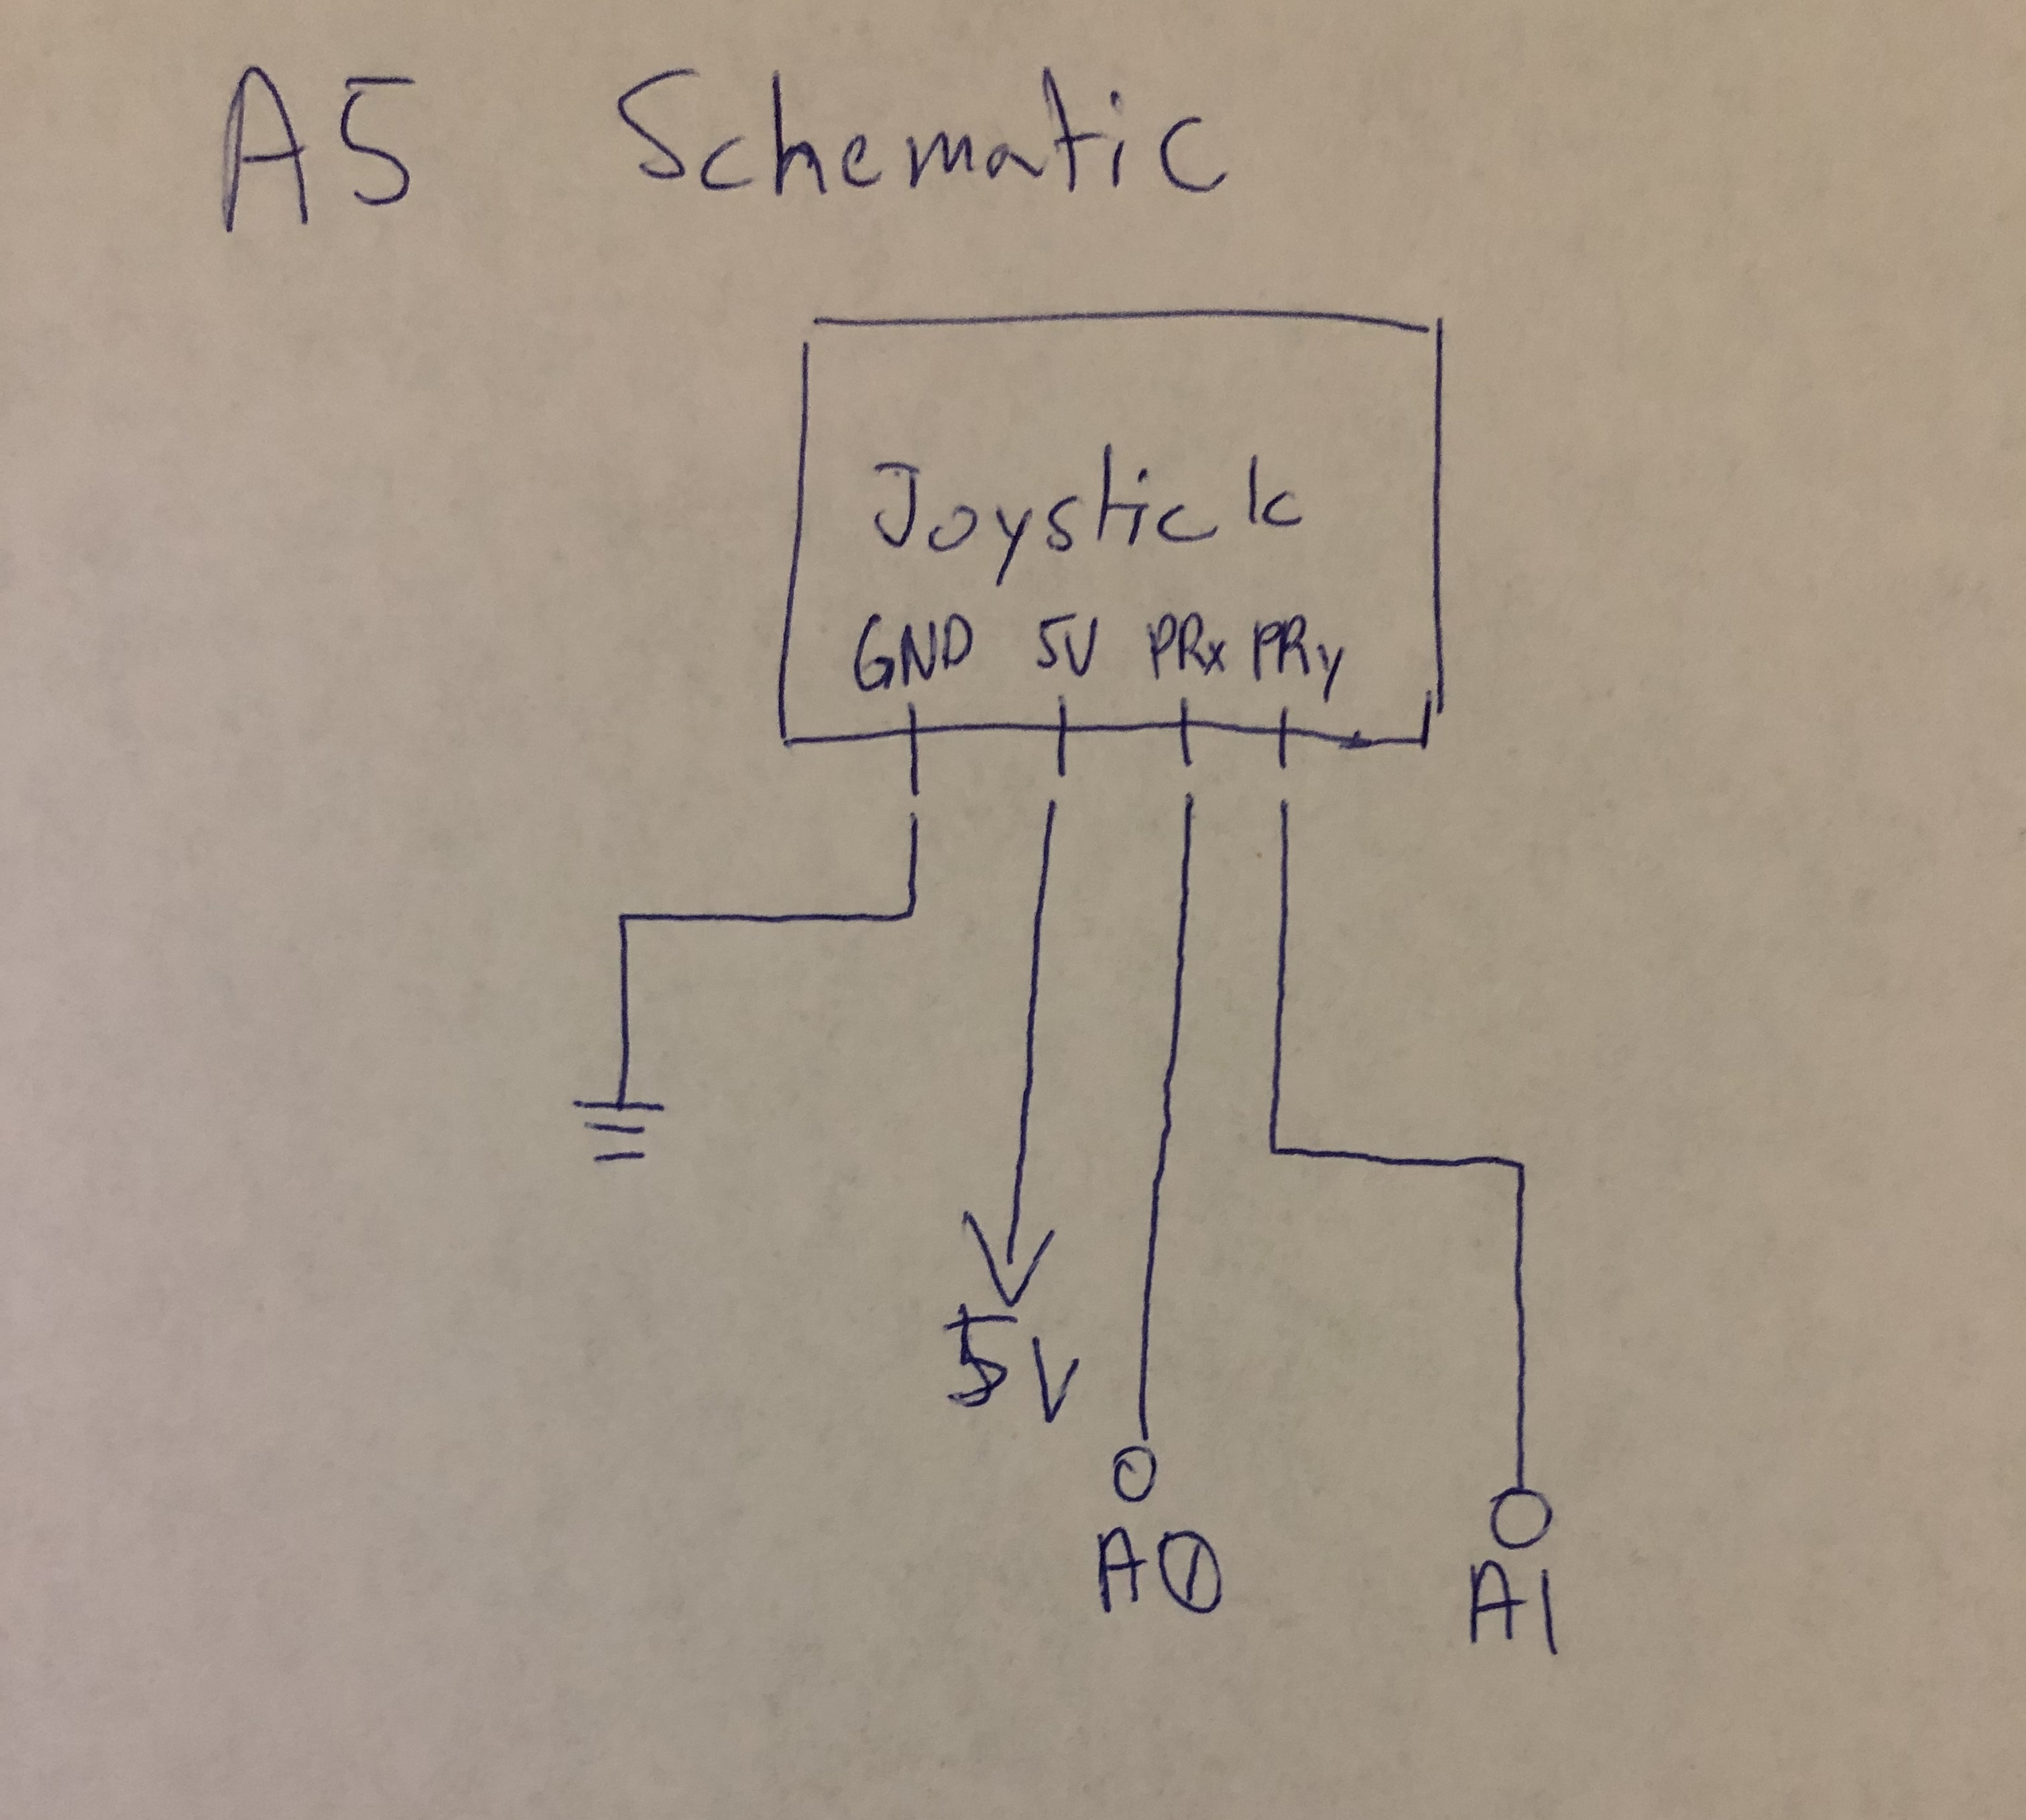 A5 Schematic
Joystick
GND 5V PRx PRy
5V
A0
A1